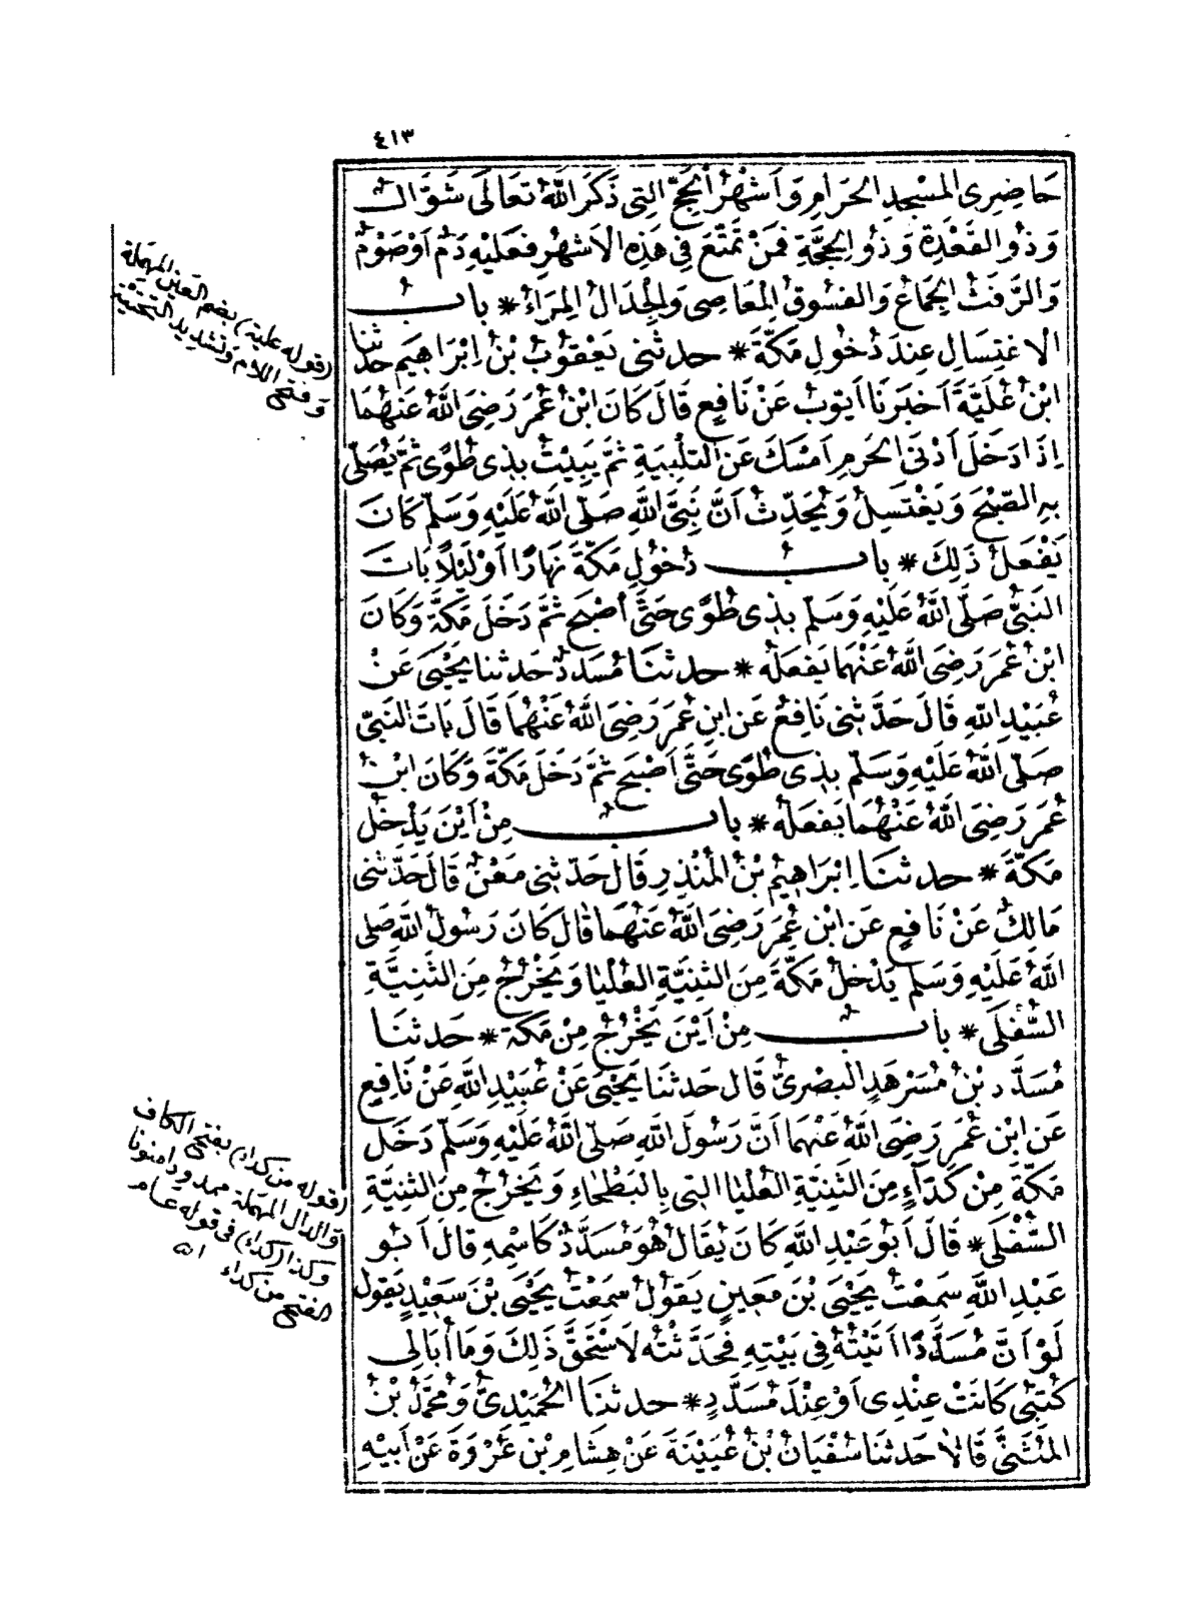 ٤١٣
حَاضِرِى المَسْجِدِ الحَرَامِ وَاَشْهُرُ الْحَجِّ الَّتِى ذَكَرَ اللّٰهُ تَعَالَى شَوَّالٌ
وَذُو القَعْدَةِ وَذُو الحِجَّةِ فَمَنْ تَمَتَّعَ فِى هَذِهِ الاَشْهُرِ فَعَلَيْهِ دَمٌ اَوْصَوْمٌ
وَالرَّفَثُ الجِمَاعُ وَالفُسُوقُ المَعَاصِى وَالجِدَالُ المِرَاءُ * بابُ
الاغْتِسَالِ عِنْدَ دُخُولِ مَكَّةَ * حدثنى يَعْقُوبُ بْنُ اِبْرَاهِيمَ حَدَّثنا
ابْنُ عُلَيَّةَ اَخْبَرَنَا اَيّوبُ عَنْ نَافِعٍ قَالَ كَانَ ابْنُ عُمَرَ رَضِىَ اللّٰهُ عَنْهُمَا
اِذَا دَخَلَ اَدْنَى الحَرَمِ اَمْسَكَ عَنِ التَلْبِيَةِ ثمّ يَبِيْتُ بِذِى طُوًى ثمّ يُصَلِّى
بِهِ الصّبْحَ وَيَغْتَسِلُ وَيُحَدِّثُ اَنَّ نَبِىَّ اللّٰهِ صَلّى اللّٰهُ عَلَيْهِ وَسَلّم كَانَ
يَفْعَلُ ذَلِكَ * بابُ دُخُولِ مَكّةَ نَهَارًا اَوْلَيْلًا بَاتَ
النَبِىُّ صَلّى اللّٰهُ عَلَيْهِ وَسَلّم بِذِى طُوًى حَتَّى اَصْبَحَ ثمّ دَخَلَ مَكَّةَ وَكَانَ
ابْنُ عُمَرَ رَضِىَ اللّٰهُ عَنْهُمَا يَفْعَلُهُ * حدثنَا مُسَدَّدٌ حَدثنا يَحْيَى عَنْ
عُبَيْدِ اللّٰهِ قَالَ حَدَّثَنِى نَافِعٌ عَنِ ابنِ عُمَرَ رَضِىَ اللّٰهُ عَنْهُمَا قَالَ بَاتَ النَبىّ
صَلّى اللّٰهُ عَلَيْهِ وَسَلّم بِذِى طُوًى حَتَّى اَصْبَحَ ثمَّ دَخَلَ مَكّةَ وَكَانَ ابْنُ
عُمَرَ رَضِىَ اللّٰهُ عَنْهُمَا يَفْعَلُهُ * بابُ مِنْ اَيْنَ يَدْخُلُ
مَكّةَ * حدثنَا اِبْرَاهِيمُ بْنُ المُنْذِرِ قَالَ حَدّثنِى مَعْنٌ قَالَ حَدَّثنى
مَالِكٌ عَنْ نَافِعٍ عَنِ ابْنِ عُمَرَ رَضِىَ اللّٰهُ عَنْهُمَا قَالَ كَانَ رَسُولُ اللّٰهِ صَلى
اللّٰهُ عَلَيْهِ وَسَلم يَدْخُلُ مَكّةَ مِنَ الثنِيَّةِ العُلْيَا وَيَخْرُجُ مِنَ الثَنِيَّةِ
السُّفْلَى * بابُ مِنْ اَيْنَ يَخْرُجُ مِنْ مَكّة * حَدثنَا
مُسَدَّدُ بْنُ مُسَرْهَدٍ البَصْرِىُّ قَالَ حَدثنَا يَحْيَى عَنْ عُبَيْدِ اللّٰهِ عَنْ نَافِعٍ
عَنِ ابْنِ عُمَرَ رَضِىَ اللّٰهُ عَنْهُمَا اَنَّ رَسُولَ اللّٰهِ صَلّى اللّٰهُ عَلَيْهِ وَسَلّم دَخَلَ
مَكّةَ مِنْ كَدَآءٍ مِنَ الثَنِيَّةِ العُلْيَا الَّتِى بِالبَطْحَاءِ وَيَخْرُجُ مِنَ الثنِيَّةِ
السُّفْلَى * قَالَ اَبُو عَبْدِ اللّٰهِ كَانَ يُقَالُ هُوَ مُسَدَّدٌ كَاسْمِهِ قَالَ اَبُو
عَبْدِ اللّٰهِ سَمِعْتُ يَحْيَى بْنَ مَعِينٍ يَقُولُ سَمِعْتُ يَحْيَى بْنَ سَعِيْدٍ يَقُولُ
لَوْ اَنَّ مُسَدَّدًا اَتَيْتُهُ فِى بَيْتِهِ فَحَدَّثْتُه لَاسْتَحَقَّ ذَلِكَ وَمَا اُبَالِى
كُتُبِى كَانَتْ عِنْدِى اَوْ عِنْدَ مُسَدَّدٍ * حدثنَا الحُمَيْدِىُّ وَمُحَمَّدُ بْنُ
المُثَنَّى قَالَا حَدثنَا سُفْيَانُ بْنُ عُيَيْنَةَ عَنْ هِشَامِ بْنِ عُرْوَةَ عَنْ اَبِيْهِ
(قوله علية) بضم العين المهملة
وفتح اللام وتشديد التحتية
(قوله من كداء) بفتح الكاف
والدال المهملة ممدودا منونا
وكذا (كداء) فى قوله عام
الفتح من كداء اه